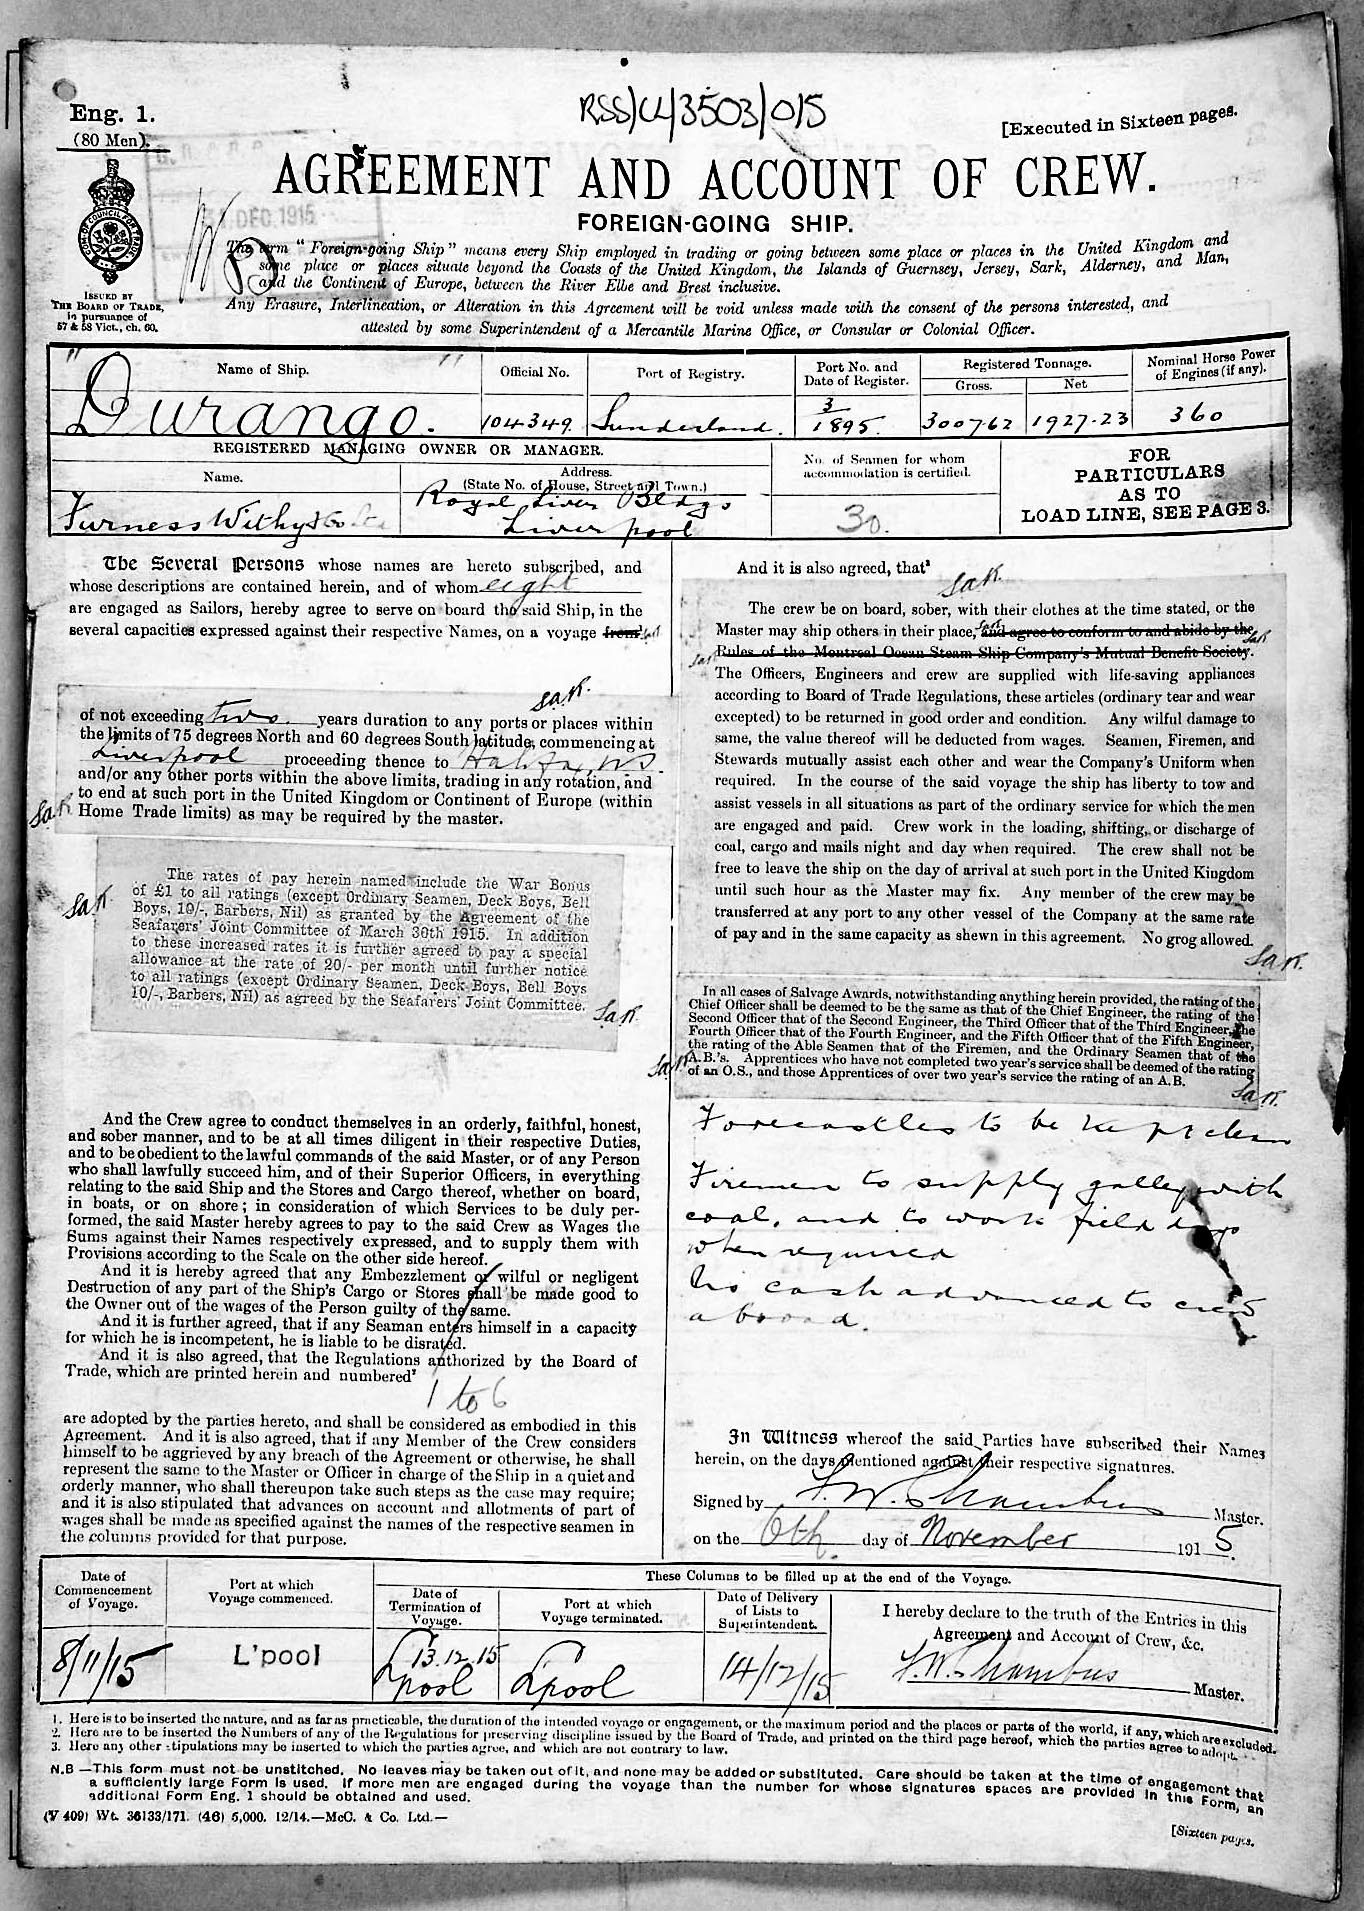 RSS/CL/3503/015
Eng. 1.
(80 Men).
[Executed in Sixteen pages.
DEC 1915
AGREEMENT AND ACCOUNT OF CREW.
FOREIGN-GOING SHIP.
The term "Foreign-going Ship" means every Ship employed in trading or going between some place or places in the United Kingdom and
some place or places situate beyond the Coasts of the United Kingdom, the Islands of Guernsey, Jersey, Sark, Alderney, and Man,
and the Continent of Europe, between the River Elbe and Brest inclusive.
Any Erasure, Interlineation, or Alteration in this Agreement will be void unless made with the consent of the persons interested, and
attested by some Superintendent of a Mercantile Marine Office, or Consular or Colonial Officer.
ISSUED BY
THE BOARD OF TRADE,
in pursuance of
57 & 58 Vict., ch. 60.
Name of Ship.
Official No.
Port of Registry.
Port No. and
Date of Register.
Registered Tonnage.
Gross.
Net
Nominal Horse Power
of Engines (if any).
"Durango."
104349
Sunderland.
3
1895.
3007.62
1927.23
360
REGISTERED MANAGING OWNER OR MANAGER.
Name.
Address.
(State No. of House, Street and Town.)
No. of Seamen for whom
accommodation is certified.
FOR
PARTICULARS
AS TO
LOAD LINE, SEE PAGE 3.
Furness Withy & Co Ltd
Royal Liver Bldgs
Liverpool
30.
The Several Persons whose names are hereto subscribed, and
whose descriptions are contained herein, and of whom eight
are engaged as Sailors, hereby agree to serve on board the said Ship, in the
several capacities expressed against their respective Names, on a voyage from¹
of not exceeding two years duration to any ports or places within
the limits of 75 degrees North and 60 degrees South latitude, commencing at
Liverpool proceeding thence to Halifax NS.
and/or any other ports within the above limits, trading in any rotation, and
to end at such port in the United Kingdom or Continent of Europe (within
Home Trade limits) as may be required by the master.
The rates of pay herein named include the War Bonus
of £1 to all ratings (except Ordinary Seamen, Deck Boys, Bell
Boys, 10/-, Barbers, Nil) as granted by the Agreement of the
Seafarers' Joint Committee of March 30th 1915. In addition
to these increased rates it is further agreed to pay a special
allowance at the rate of 20/- per month until further notice
to all ratings (except Ordinary Seamen, Deck Boys, Bell Boys
10/-, Barbers, Nil) as agreed by the Seafarers' Joint Committee.
And the Crew agree to conduct themselves in an orderly, faithful, honest,
and sober manner, and to be at all times diligent in their respective Duties,
and to be obedient to the lawful commands of the said Master, or of any Person
who shall lawfully succeed him, and of their Superior Officers, in everything
relating to the said Ship and the Stores and Cargo thereof, whether on board,
in boats, or on shore; in consideration of which Services to be duly per-
formed, the said Master hereby agrees to pay to the said Crew as Wages the
Sums against their Names respectively expressed, and to supply them with
Provisions according to the Scale on the other side hereof.
And it is hereby agreed that any Embezzlement or wilful or negligent
Destruction of any part of the Ship's Cargo or Stores shall be made good to
the Owner out of the wages of the Person guilty of the same.
And it is further agreed, that if any Seaman enters himself in a capacity
for which he is incompetent, he is liable to be disrated.
And it is also agreed, that the Regulations authorized by the Board of
Trade, which are printed herein and numbered²
1 to 6
are adopted by the parties hereto, and shall be considered as embodied in this
Agreement. And it is also agreed, that if any Member of the Crew considers
himself to be aggrieved by any breach of the Agreement or otherwise, he shall
represent the same to the Master or Officer in charge of the Ship in a quiet and
orderly manner, who shall thereupon take such steps as the case may require;
and it is also stipulated that advances on account and allotments of part of
wages shall be made as specified against the names of the respective seamen in
the columns provided for that purpose.
And it is also agreed, that³
The crew be on board, sober, with their clothes at the time stated, or the
Master may ship others in their place, and agree to conform to and abide by the
Rules of the Montreal Ocean Steam Ship Company's Mutual Benefit Society.
The Officers, Engineers and crew are supplied with life-saving appliances
according to Board of Trade Regulations, these articles (ordinary tear and wear
excepted) to be returned in good order and condition. Any wilful damage to
same, the value thereof will be deducted from wages. Seamen, Firemen, and
Stewards mutually assist each other and wear the Company's Uniform when
required. In the course of the said voyage the ship has liberty to tow and
assist vessels in all situations as part of the ordinary service for which the men
are engaged and paid. Crew work in the loading, shifting, or discharge of
coal, cargo and mails night and day when required. The crew shall not be
free to leave the ship on the day of arrival at such port in the United Kingdom
until such hour as the Master may fix. Any member of the crew may be
transferred at any port to any other vessel of the Company at the same rate
of pay and in the same capacity as shewn in this agreement. No grog allowed.
In all cases of Salvage Awards, notwithstanding anything herein provided, the rating of the
Chief Officer shall be deemed to be the same as that of the Chief Engineer, the rating of the
Second Officer that of the Second Engineer, the Third Officer that of the Third Engineer, the
Fourth Officer that of the Fourth Engineer, and the Fifth Officer that of the Fifth Engineer,
the rating of the Able Seamen that of the Firemen, and the Ordinary Seamen that of the
A.B.'s. Apprentices who have not completed two year's service shall be deemed of the rating
of an O.S., and those Apprentices of over two year's service the rating of an A.B.
Forecastles to be kept clean
Firemen to supply galley with
coal, and to work field days
when required
No cash advanced to crew
abroad.
In Witness whereof the said Parties have subscribed their Names
herein, on the days mentioned against their respective signatures.
Signed by Master.
on the 6th. day of November 1915.
Date of
Commencement
of Voyage.
Port at which
Voyage commenced.
These Columns to be filled up at the end of the Voyage.
Date of
Termination of
Voyage.
Port at which
Voyage terminated.
Date of Delivery
of Lists to
Superintendent.
I hereby declare to the truth of the Entries in this
Agreement and Account of Crew, &c.
8/11/15
L'pool
13.12.15
L'pool
L'pool
14/12/15
Master.
1. Here is to be inserted the nature, and as far as practicable, the duration of the intended voyage or engagement, or the maximum period and the places or parts of the world, if any, which are excluded.
2. Here are to be inserted the Numbers of any of the Regulations for preserving discipline issued by the Board of Trade, and printed on the third page hereof, which the parties agree to adopt.
3. Here any other stipulations may be inserted to which the parties agree, and which are not contrary to law.
N.B.—This form must not be unstitched. No leaves may be taken out of it, and none may be added or substituted. Care should be taken at the time of engagement that
a sufficiently large Form is used. If more men are engaged during the voyage than the number for whose signatures spaces are provided in this Form, an
additional Form Eng. 1 should be obtained and used.
(V 409) Wt. 36133/171. (46) 5,000. 12/14.—McC. & Co. Ltd.—
[Sixteen pages.